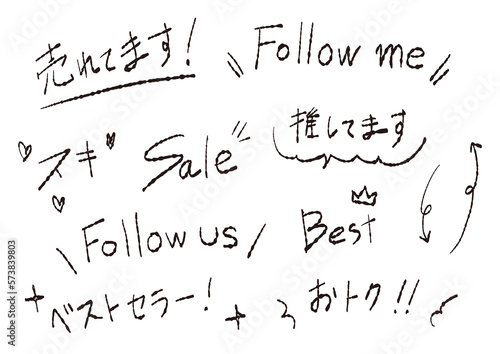 売れてます!
Follow me
スキ
Sale
推してます
Follow us
Best
ベストセラー!
おトク!!
Adobe Stock
#573839803